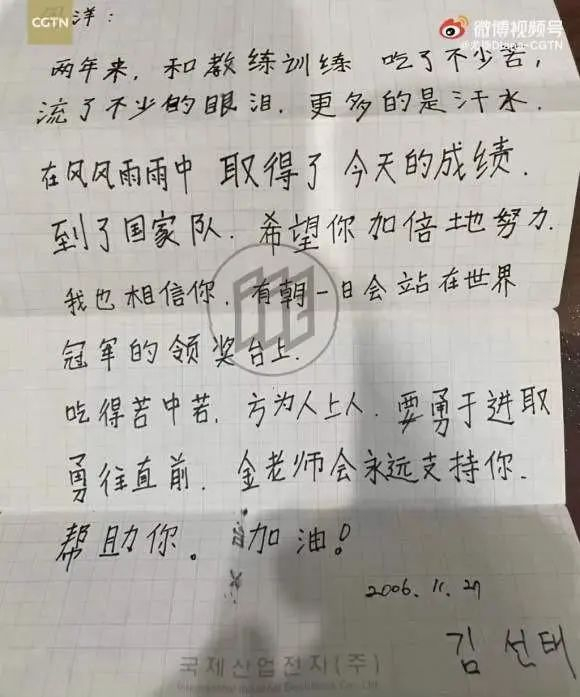 CGTN
微博视频号
洋：
两年来，和教练训练 吃了不少苦，
流了不少的眼泪．更多的是汗水．
在风风雨雨中 取得了 今天的成绩．
到了国家队．希望你加倍地努力．
我也相信你，有朝一日会站在世界
冠军的领奖台上．
吃得苦中苦，方为人上人．要勇于进取
勇往直前．金老师会永远支持你．
帮助你。加油！
2006.11.27
김 선태
국제산업전자(주)
International Industrial Electronics Co., Ltd